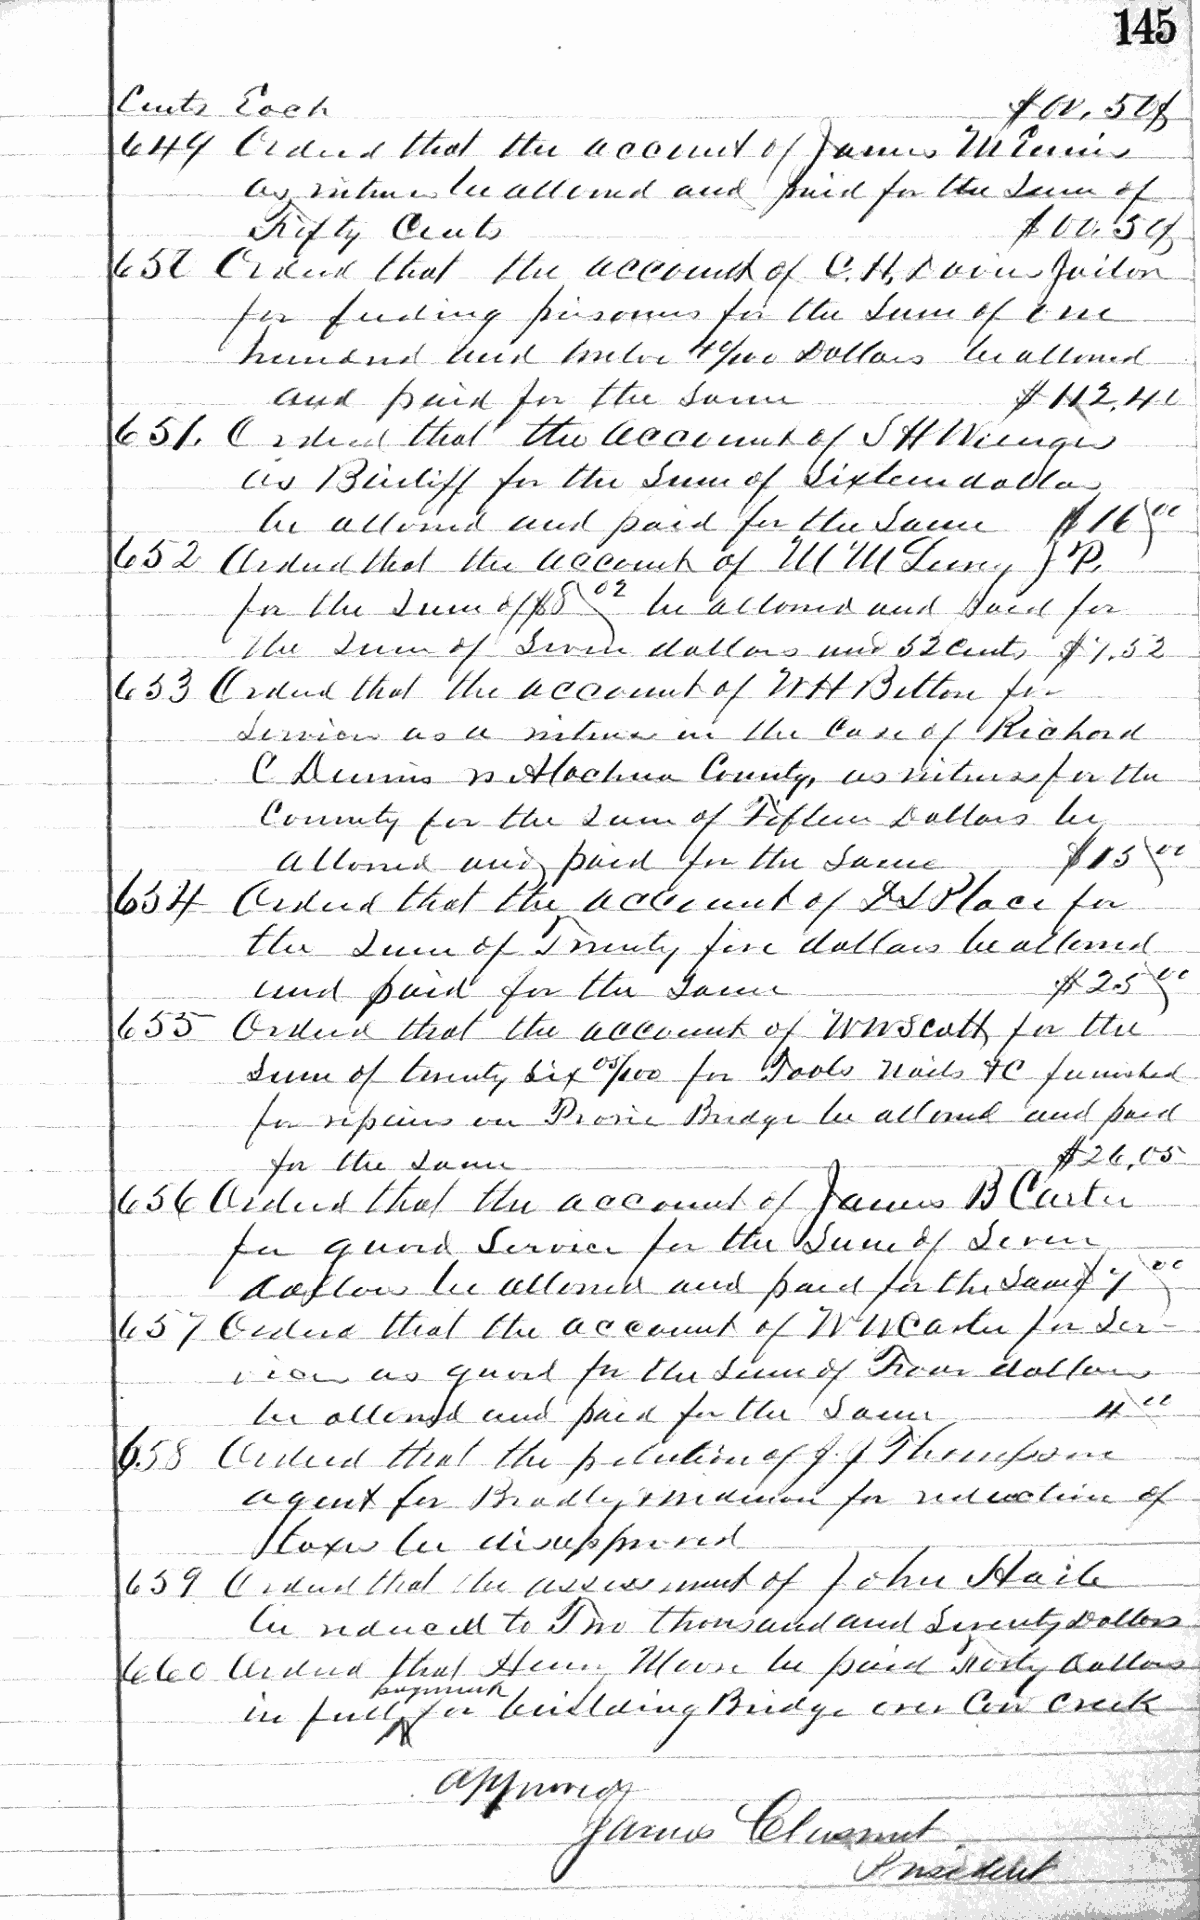 145
Cents Each $00.50
649 Ordered that the account of James
as witness be allowed and paid for the Sum of
Fifty Cents $00.50
650 Ordered that the account of C. H. Davis Jailor
for feeding prisoners for the Sum of One
hundred and twelve 40/100 Dollars be allowed
and paid for the Same $112.40
651. Ordered that the account of S H Wienges
as Bailiff for the Sum of Sixteen dollars
be allowed and paid for the Same $16 00
652 Ordered that the account of J P.
for the Sum of $8 02 be allowed and paid for
the Sum of Seven dollars and 52 cents $7.52
653 Ordered that the account of W H Belton for
Services as a witness in the Case of Richard
C Dennis vs Alachua County, as witness for the
County for the Sum of Fifteen Dollars be
allowed and paid for the Same $15 00
654 Ordered that the account of Place for
the Sum of Twenty five dollars be allowed
and paid for the Same $25 00
655 Ordered that the account of W W Scott for the
Sum of twenty Six 05/100 for Tools Nails &C furnished
for repairs on Prairie Bridge be allowed and paid
for the Same $26.05
656 Ordered that the account of James B Carter
for guard Service for the Sum of Seven
dollars be allowed and paid for the Same $7 00
657 Ordered that the account of W W Carter for Ser-
vices as guard for the Sum of Four dollars
be allowed and paid for the Same 4 00
658 Ordered that the petition of J. J Thompson
agent for Bradley for reduction of
taxes be disapproved
659 Ordered that the assessment of John Haile
be reduced to Two thousand and Seventy Dollars
660 Ordered that Henry Moore be paid Forty dollars
in full payment for building Bridge over Cow Creek
approved
James Chesnut
President